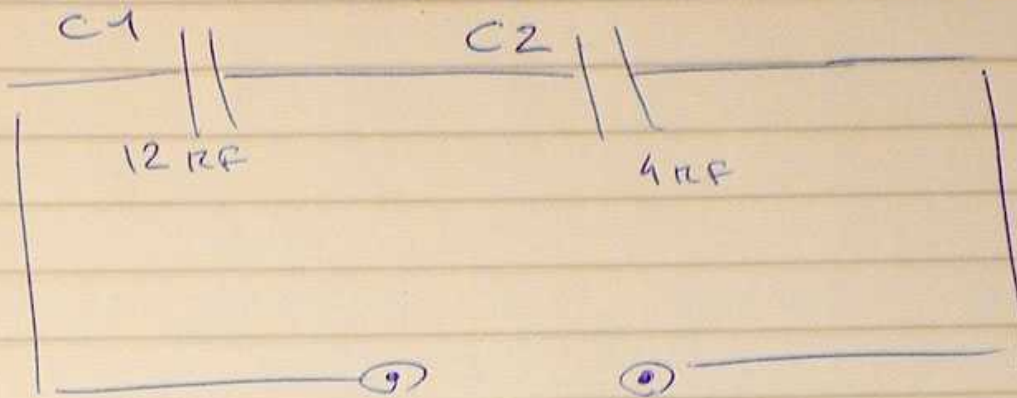 C1
C2
12 RF
4 RF